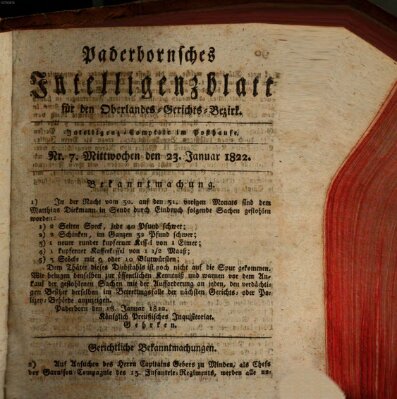 Paderbornsches
Intelligenzblatt
für den Oberlandes-Gerichts-Bezirk.
Intelligenz-Comptoir im Posthause.
Nr. 7. Mittwochen den 23. Januar 1822.
Bekanntmachung.
1) In der Nacht vom 30. auf den 31. vorigen Monats sind dem
Matthias Diekmann in Sende durch Einbruch folgende Sachen gestohlen
worden:
1) 2 Seiten Speck, jede 40 Pfund schwer;
2) 2 Schinken, im Ganzen 50 Pfund schwer;
3) 1 neuer runder kupferner Kessel von 1 Eimer;
4) 1 kupferner Kaffeekessel von 1 1/2 Maaß;
5) 3 Gebele mit 9 oder 10 Blutwürsten;
Dem Thäter dieses Diebstahls ist noch nicht auf die Spur gekommen.
Wir bringen denselben zur öffentlichen Kenntniß und warnen vor dem An-
kauf der gestohlenen Sachen mit der Aufforderung an jeden, den verdächti-
gen Besitzer derselben im Betretungsfalle der nächsten Gerichts- oder Po-
lizei-Behörde anzuzeigen.
Paderborn den 18. Januar 1822.
Königlich Preußisches Inquisitoriat.
Gehrken.
Gerichtliche Bekanntmachungen.
2) Auf Ansuchen des Herrn Capitains Gebers zu Minden, als Chefs
der Garnison-Compagnie des 15. Infanterie-Regiments, werden alle